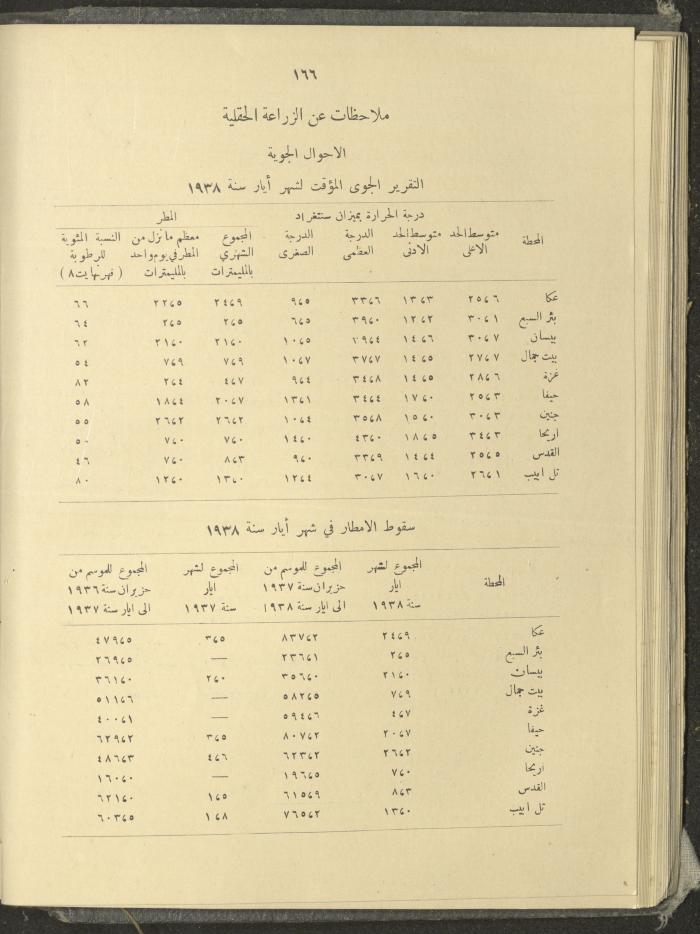 ١٦٦
ملاحظات عن الزراعة الحقلية
الاحوال الجوية
التقرير الجوى المؤقت لشهر أيار سنة ١٩٣٨
درجة الحرارة بميزان سنتغراد المطر
المحطة متوسط الحد الاعلى متوسط الحد الادنى الدرجة العظمى الدرجة الصغرى المجموع الشهري بالمليمترات معظم ما نزل من المطر في يوم واحد بالمليمترات النسبة المئوية للرطوبة (فهرنهايت ٨)
عكا ٢٥٬٦ ١٣٬٣ ٣٣٬٦ ٩٬٥ ٢٤٬٩ ٢٢٬٥ ٦٦
بئر السبع ٣٠٬١ ١٢٬٢ ٣٩٬٠ ٦٬٥ ٢٬٥ ٢٬٥ ٦٤
بيسان ٣٠٬٧ ١٤٬٦ ٩٬٤ ١٠٬٥ ٢١٬٠ ٢١٬٠ ٦٢
بيت جمال ٢٧٬٧ ١٤٬٥ ٣٧٬٧ ١٠٬٧ ٧٬٩ ٧٬٩ ٥٤
غزة ٢٨٬٦ ١٤٬٥ ٣٤٬٨ ٩٬٤ ٤٬٧ ٢٬٤ ٨٢
حيفا ٢٥٬٣ ١٧٬٠ ٣٤٬٤ ١٣٬١ ٢٠٬٧ ١٨٬٤ ٥٨
جنين ٣٠٬٣ ١٥٬٠ ٣٥٬٨ ١٠٬٤ ٢٦٬٢ ٢٦٬٢ ٥٥
اريحا ٣٤٬٣ ١٨٬٥ ٤٣٬٠ ١٤٬٠ ٧٬٠ ٧٬٠ ٥٠
القدس ٢٥٬٥ ١٤٬٤ ٣٣٬٩ ٩٬٠ ٨٬٣ ٧٬٠ ٤٦
تل ابيب ٢٦٬١ ١٦٬٠ ٣٠٬٧ ١٢٬٤ ١٣٬٠ ١٢٬٠ ٨٠
سقوط الامطار في شهر أيار سنة ١٩٣٨
المحطة المجموع لشهر ايار سنة ١٩٣٨ المجموع للموسم من حزيران سنة ١٩٣٧ الى ايار سنة ١٩٣٨ المجموع لشهر ايار سنة ١٩٣٧ المجموع للموسم من حزيران سنة ١٩٣٦ الى ايار سنة ١٩٣٧
عكا ٢٤٬٩ ٨٣٧٬٢ ٣٬٥ ٤٧٩٬٥
بئر السبع ٢٬٥ ٢٣٦٬١ — ٢٦٩٬٥
بيسان ٢١٬٠ ٣٥٦٬٠ ٢٬٠ ٣٦١٬٠
بيت جمال ٧٬٩ ٥٨٢٬٥ — ٥١١٬٦
غزة ٤٬٧ ٥٩٤٬٦ — ٤٠٠٬١
حيفا ٢٠٬٧ ٨٠٧٬٢ ٣٬٥ ٦٢٩٬٢
جنين ٢٦٬٢ ٦٢٣٬٢ ٤٬٦ ٤٨٦٬٣
اريحا ٧٬٠ ١٩٦٬٥ — ١٦٠٬٠
القدس ٨٬٣ ٦١٥٬٩ ١٬٥ ٦٢١٬٠
تل ابيب ١٣٬٠ ٧٦٥٬٢ ١٬٨ ٦٠٣٬٥